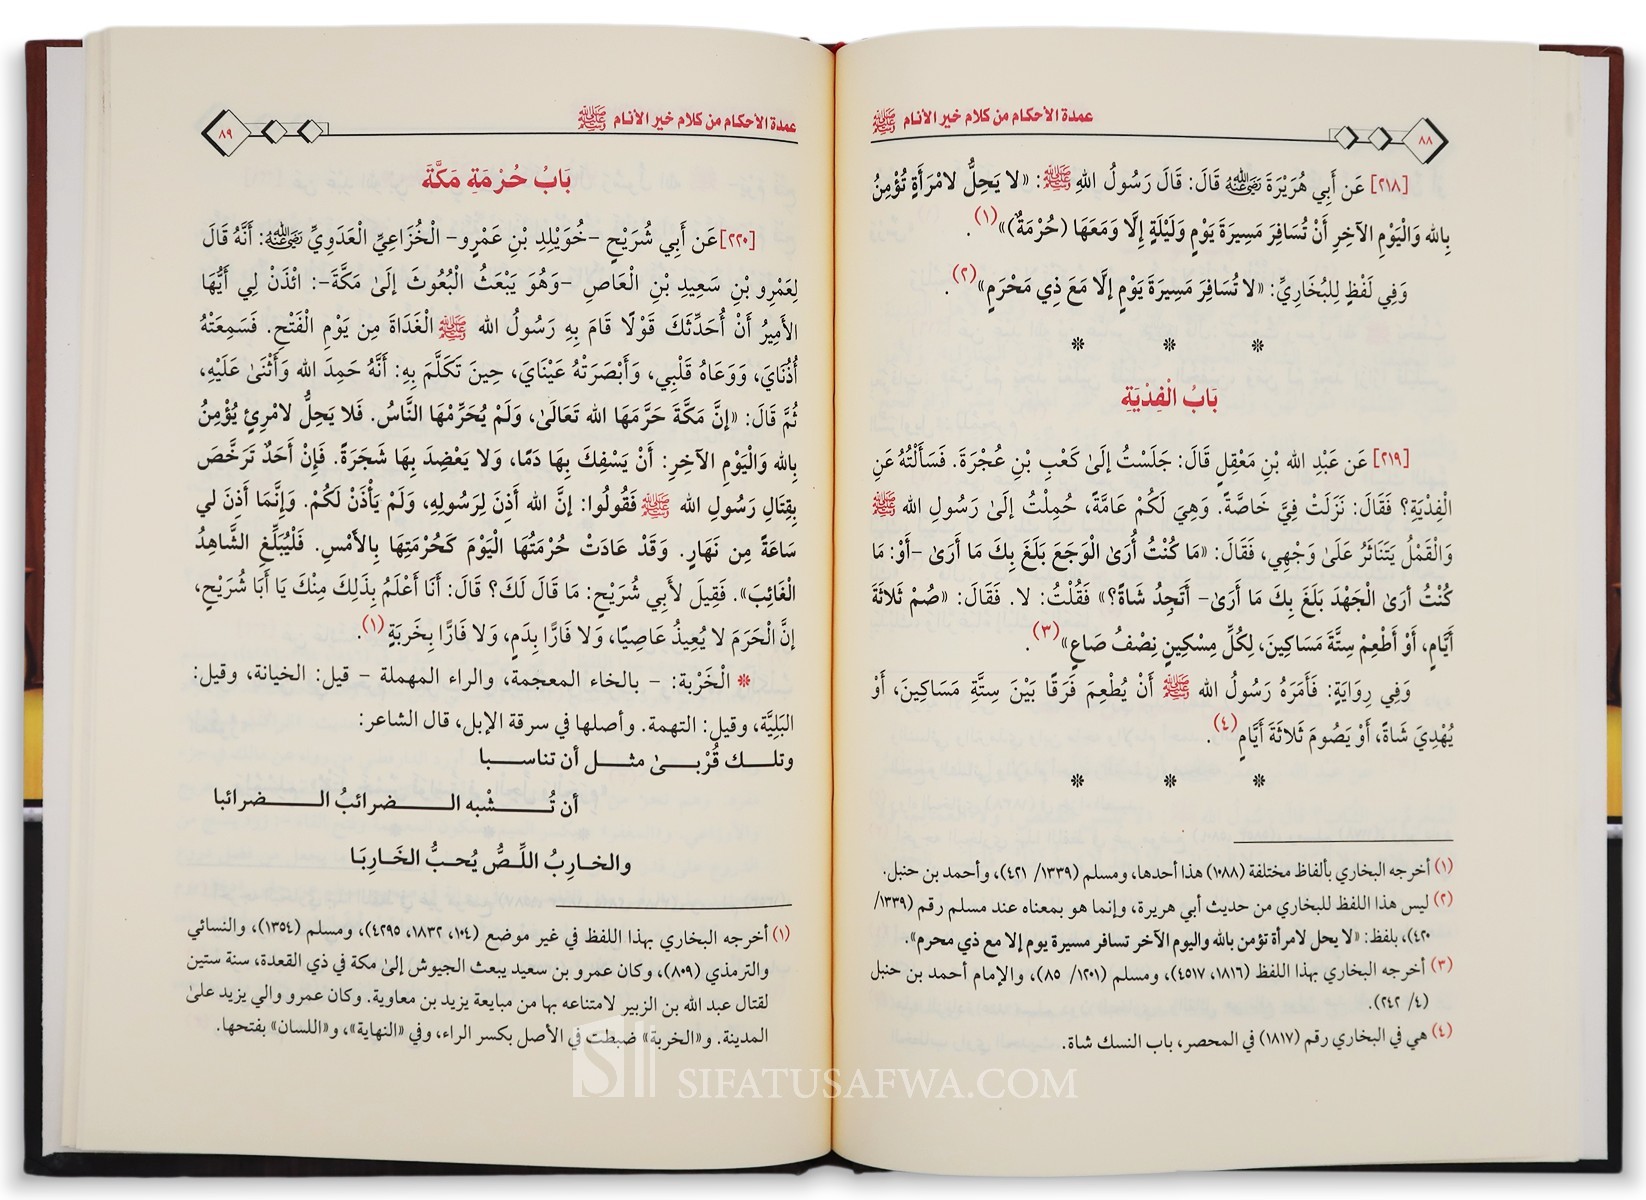 عمدة الأحكام من كلام خير الأنام ﷺ
٨٨
[٢١٨] عَن أَبِي هُرَيْرَةَ رَضِيَ اللهُ عَنْهُ قَالَ: قَالَ رَسُولُ اللهِ ﷺ: «لا يَحِلُّ لامْرَأَةٍ تُؤْمِنُ
بِالله وَالْيَوْمِ الآخِرِ أَنْ تُسَافِرَ مَسِيرَةَ يَوْمٍ وَلَيْلَةٍ إِلَّا وَمَعَهَا (حُرْمَةٌ)»(١).
وَفِي لَفْظٍ لِلبُخَارِيِّ: «لا تُسَافِرَ مَسِيرَةَ يَوْمٍ إلَّا مَعَ ذِي مَحْرَمٍ»(٢).
* * *
بَابُ الْفِدْيَةِ
[٢١٩] عَن عَبْدِ الله بْنِ مَعْقِلٍ قَالَ: جَلَسْتُ إلَىٰ كَعْبِ بْنِ عُجْرَةَ. فَسَأَلْتُهُ عَنِ
الْفِدْيَةِ؟ فَقَالَ: نَزَلَتْ فِيَّ خَاصَّةً. وَهِيَ لَكُمْ عَامَّةً، حُمِلْتُ إلَىٰ رَسُولِ الله ﷺ
وَالْقَمْلُ يَتَنَاثَرُ عَلَىٰ وَجْهِي، فَقَالَ: «مَا كُنْتُ أُرَىٰ الْوَجَعَ بَلَغَ بِكَ مَا أَرَىٰ -أَوْ: مَا
كُنْتُ أرَىٰ الْجَهْدَ بَلَغَ بِكَ مَا أَرَىٰ- أَتَجِدُ شَاةً؟» فَقُلْتُ: لا. فَقَالَ: «صُمْ ثَلاثَةَ
أَيَّامٍ، أَوْ أَطْعِمْ سِتَّةَ مَسَاكِينَ، لِكُلِّ مِسْكِينٍ نِصْفُ صَاعٍ»(٣).
وَفِي رِوَايَةٍ: فَأَمَرَهُ رَسُولُ الله ﷺ أَنْ يُطْعِمَ فَرَقًا بَيْنَ سِتَّةِ مَسَاكِينَ، أَوْ
يُهْدِيَ شَاةً، أَوْ يَصُومَ ثَلاثَةَ أَيَّامٍ(٤).
* * *
(١) أخرجه البخاري بألفاظ مختلفة (١٠٨٨) هذا أحدها، ومسلم (١٣٣٩/ ٤٢١)، وأحمد بن حنبل.
(٢) ليس هذا اللفظ للبخاري من حديث أبي هريرة، وإنما هو بمعناه عند مسلم رقم (١٣٣٩/
٤٢٠)، بلفظ: «لا يحل لامرأة تؤمن بالله واليوم الآخر تسافر مسيرة يوم إلا مع ذي محرم».
(٣) أخرجه البخاري بهذا اللفظ (١٨١٦، ٤٥١٧)، ومسلم (١٢٠١/ ٨٥)، والإمام أحمد بن حنبل
(٤/ ٢٤٢).
(٤) هي في البخاري رقم (١٨١٧) في المحصر، باب النسك شاة.
عمدة الأحكام من كلام خير الأنام ﷺ
٨٩
بَابُ حُرْمَةِ مَكَّةَ
[٢٢٠] عَن أَبِي شُرَيْحٍ -خُوَيْلِدِ بْنِ عَمْرٍو- الْخُزَاعِيِّ الْعَدَوِيِّ رَضِيَ اللهُ عَنْهُ: أَنَّهُ قَالَ
لِعَمْرِو بْنِ سَعِيدِ بْنِ الْعَاصِ -وَهُوَ يَبْعَثُ الْبُعُوثَ إلَىٰ مَكَّةَ-: ائْذَنْ لِي أَيُّهَا
الأَمِيرُ أَنْ أُحَدِّثَكَ قَوْلًا قَامَ بِهِ رَسُولُ الله ﷺ الْغَدَاةَ مِن يَوْمِ الْفَتْحِ. فَسَمِعَتْهُ
أُذُنَايَ، وَوَعَاهُ قَلْبِي، وَأَبْصَرَتْهُ عَيْنَايَ، حِينَ تَكَلَّمَ بِهِ: أَنَّهُ حَمِدَ الله وَأَثْنَىٰ عَلَيْهِ،
ثُمَّ قَالَ: «إنَّ مَكَّةَ حَرَّمَهَا الله تَعَالَىٰ، وَلَمْ يُحَرِّمْهَا النَّاسُ. فَلا يَحِلُّ لامْرِئٍ يُؤْمِنُ
بِالله وَالْيَوْمِ الآخِرِ: أَنْ يَسْفِكَ بِهَا دَمًا، وَلا يَعْضِدَ بِهَا شَجَرَةً. فَإِنْ أَحَدٌ تَرَخَّصَ
بِقِتَالِ رَسُولِ الله ﷺ فَقُولُوا: إنَّ الله أَذِنَ لِرَسُولِهِ، وَلَمْ يَأْذَنْ لَكُمْ. وَإِنَّمَا أَذِنَ لي
سَاعَةً مِن نَهَارٍ. وَقَدْ عَادَتْ حُرْمَتُهَا الْيَوْمَ كَحُرْمَتِهَا بِالأَمْسِ. فَلْيُبَلِّغِ الشَّاهِدُ
الْغَائِبَ». فَقِيلَ لأَبِي شُرَيْحٍ: مَا قَالَ لَكَ؟ قَالَ: أَنَا أَعْلَمُ بِذَلِكَ مِنْكَ يَا أَبَا شُرَيْحٍ،
إنَّ الْحَرَمَ لا يُعِيذُ عَاصِيًا، وَلا فَارًّا بِدَمٍ، وَلا فَارًّا بِخَرِبَةٍ(١).
* الْخَرْبة: - بالخاء المعجمة، والراء المهملة - قيل: الخيانة، وقيل:
البَلِيَّة، وقيل: التهمة. وأصلها في سرقة الإبل، قال الشاعر:
وتلـــك قُرْبــىٰ مثــل أن تناســبا
أن تُـــشْبه الـــضرائبُ الـــضرائبا
والخارِبُ اللِّـصُّ يُحبُّ الخَـارِبَا
(١) أخرجه البخاري بهذا اللفظ في غير موضع (١٠٤، ١٨٣٢، ٤٢٩٥)، ومسلم (١٣٥٤)، والنسائي
والترمذي (٨٠٩)، وكان عمرو بن سعيد يبعث الجيوش إلىٰ مكة في ذي القعدة، سنة ستين
لقتال عبد الله بن الزبير لامتناعه بها من مبايعة يزيد بن معاوية. وكان عمرو والي يزيد علىٰ
المدينة. و«الخربة» ضبطت في الأصل بكسر الراء، وفي «النهاية»، و«اللسان» بفتحها.
SIFATUSAFWA.COM